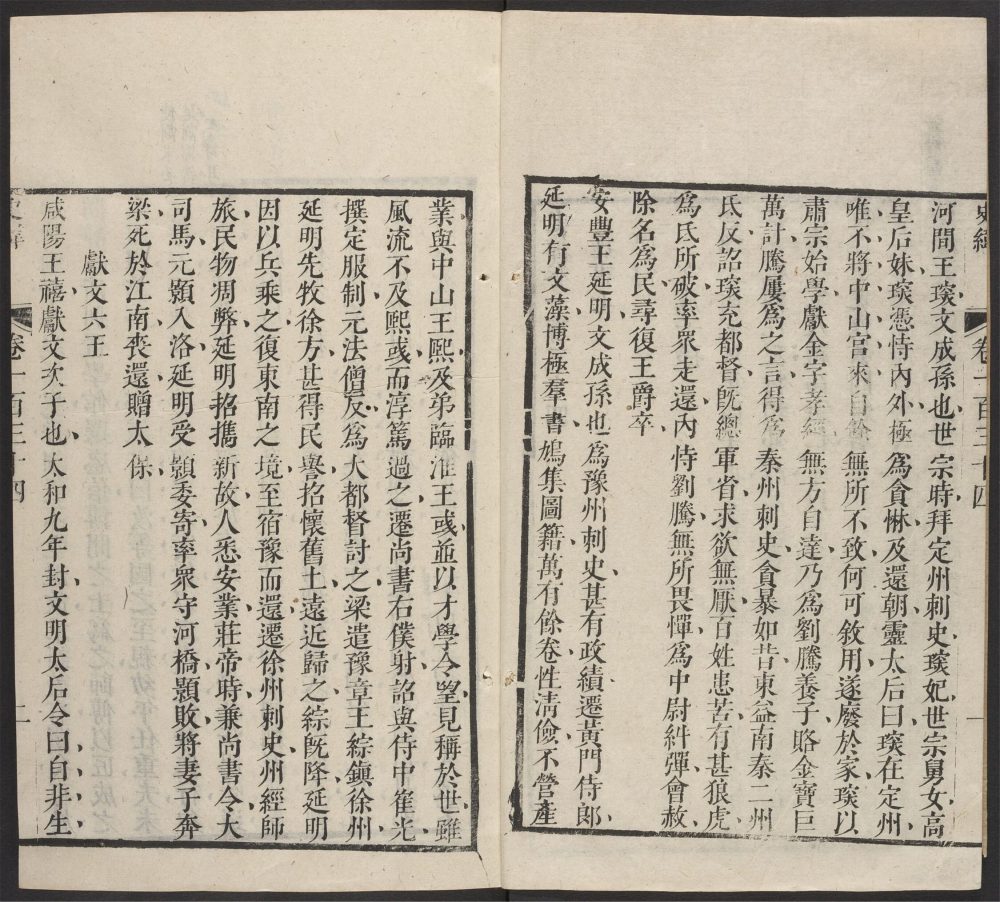 史緯
卷一百三十四
一
河間王琛文成孫也世宗時拜定州刺史琛妃世宗舅女高
皇后妹琛憑恃內外極爲貪惏及還朝靈太后曰琛在定州
唯不將中山宮來自餘無所不致何可敘用遂廢於家琛以
肅宗始學獻金字孝經無方自達乃爲劉騰養子賂金寶巨
萬計騰屢爲之言得爲秦州刺史貪暴如昔東益南秦二州
氐反詔琛充都督旣總軍省求欲無厭百姓患苦有甚狼虎
爲氐所破率眾走還內恃劉騰無所畏憚爲中尉糾彈會赦
除名爲民尋復王爵卒
安豐王延明文成孫也爲豫州刺史甚有政績遷黃門侍郎
延明有文藻博極羣書鳩集圖籍萬有餘卷性清儉不營產
業與中山王熙及弟臨淮王彧並以才學令望見稱於世雖
風流不及熙彧而淳篤過之遷尚書右僕射詔與侍中崔光
撰定服制元法僧反爲大都督討之梁遣豫章王綜鎭徐州
延明先牧徐方甚得民譽招懷舊土遠近歸之綜旣降延明
因以兵乘之復東南之境至宿豫而還遷徐州刺史州經師
旅民物凋弊延明招攜新故人悉安業莊帝時兼尚書令大
司馬元顥入洛延明受顥委寄率眾守河橋顥敗將妻子奔
梁死於江南喪還贈太保
獻文六王
咸陽王禧獻文次子也太和九年封文明太后令曰自非生
卷一百三十四
二